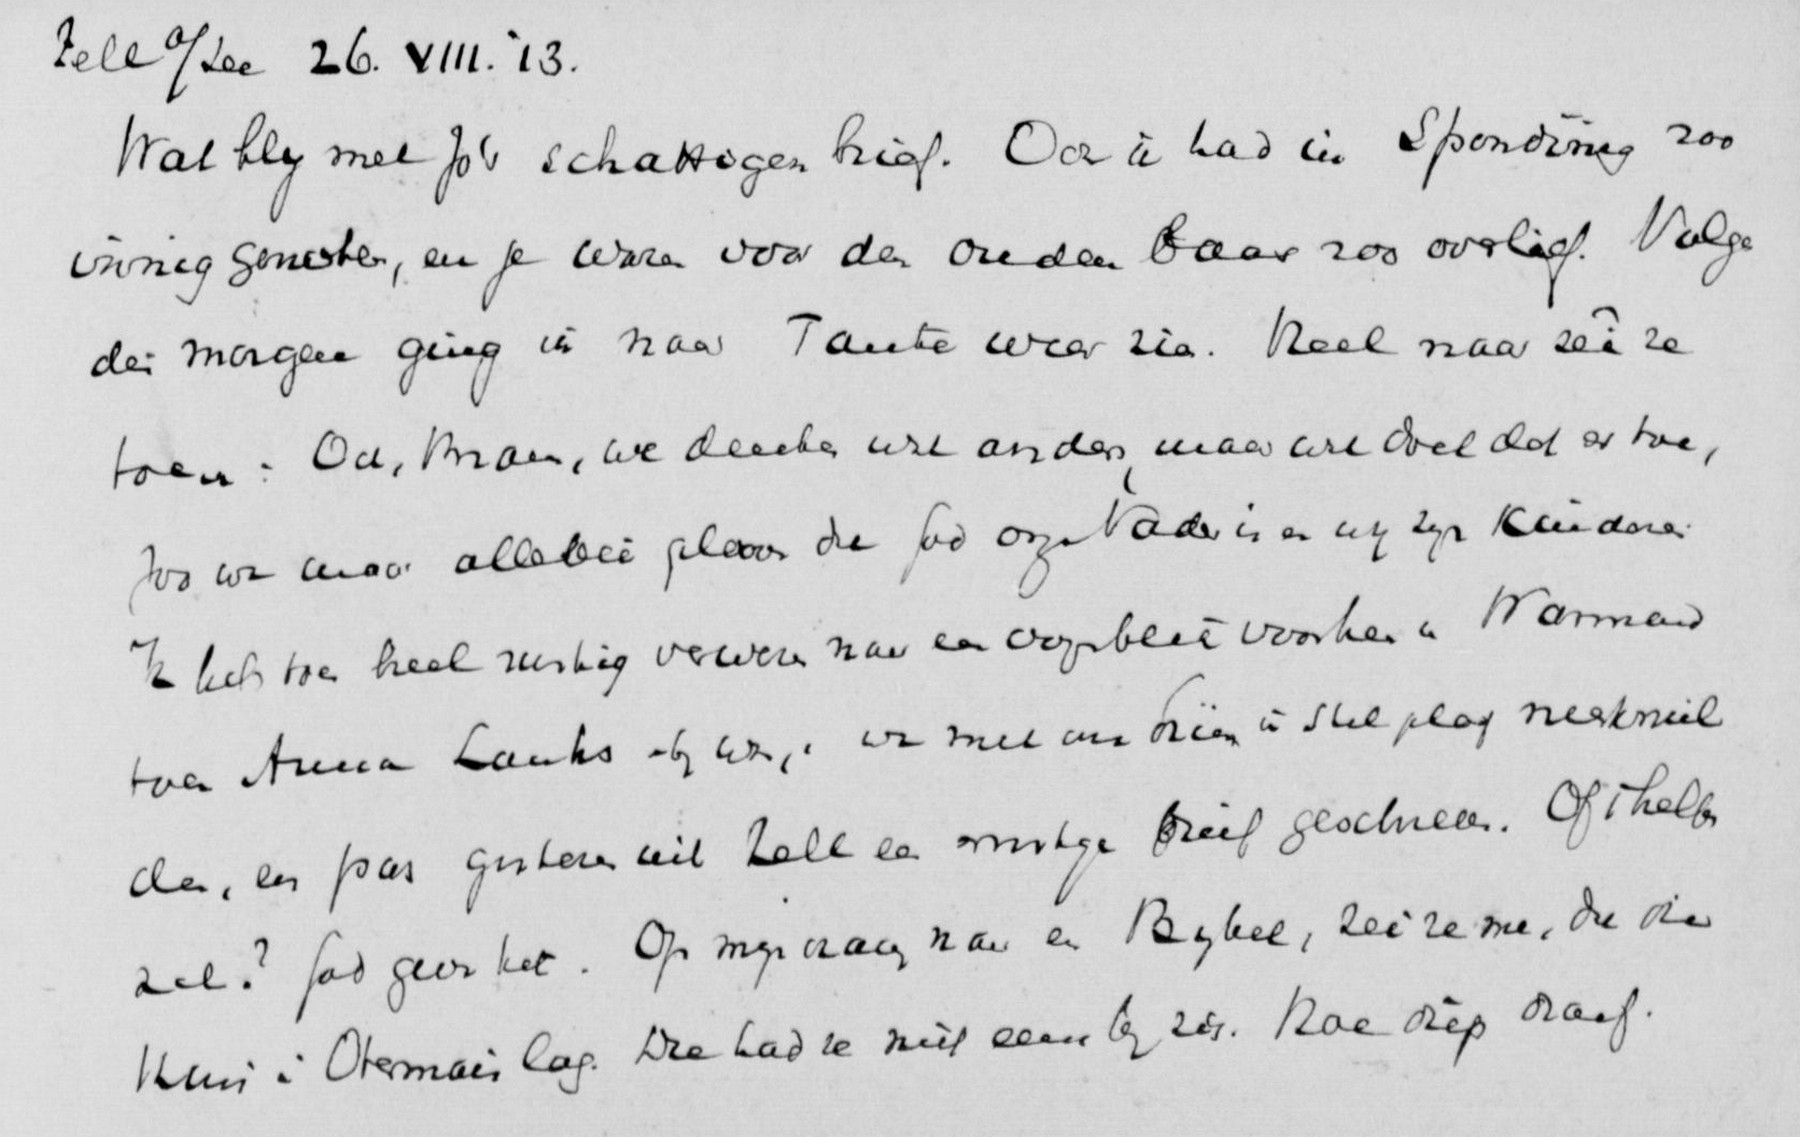 Zell a/See 26. VIII. '13.
Wat bly met Jo's schattigen brief. Ook ik had in Spondinig zoo
innig genoten, en je waren voor den ouden baas zoo overlief. Volgen
den morgen ging ik naar Tante weer zien. Heel naar zei ze
toen: Och, Bram, we denken wel anders, maar wat doet dat er toe,
zoo we maar allebei gelooven dat God onze Vader is en wij zijn kinderen.
Ik heb toen heel rustig verwezen naar een oogenblik voorheen in Warmond
toen Anna Lanks bij was, we met ons drieën in stil gebed neerkniel
den, en pas gisteren uit Zell een ernstige brief geschreven. Of 't helpen
zal? God geve het. Op mijn vraag naar een Bybel, zei ze me, dat die
thuis in Obermais lag. Die had ze niet eens bij zich. Hoe diep droef.